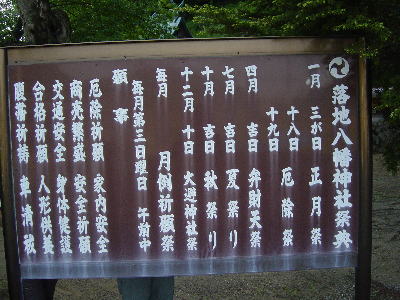 落地八幡神社祭典
一月 三が日 正月祭
十八日 厄除祭
十九日
四月 吉日 弁財天祭
七月 吉日 夏祭り
十月 吉日 秋祭り
十二月 十日 大避神社祭
毎月 月例祈願祭
毎月第三日曜日 午前中
願事
厄除祈願 家内安全
商売繁盛 安全祈願
交通安全 身体健護
合格祈願 人形供養
車清祓